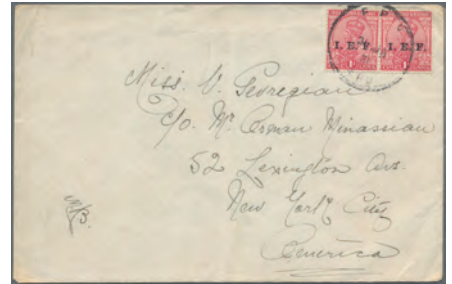 I.E.F. I.E.F.
Miss. V. Gevregian
c/o. Mr Osman Minassian
52 Lexington Ave.
New York City
America